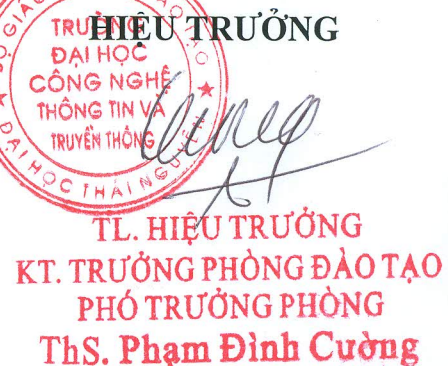 HIỆU TRƯỞNG
BỘ GIÁO
TẠO
TRƯỜNG
ĐẠI HỌC
CÔNG NGHỆ
THÔNG TIN VÀ
TRUYỀN THÔNG
ĐẠI HỌC THÁI NGUYÊN
TL. HIỆU TRƯỞNG
KT. TRƯỞNG PHÒNG ĐÀO TẠO
PHÓ TRƯỞNG PHÒNG
ThS. Phạm Đình Cường